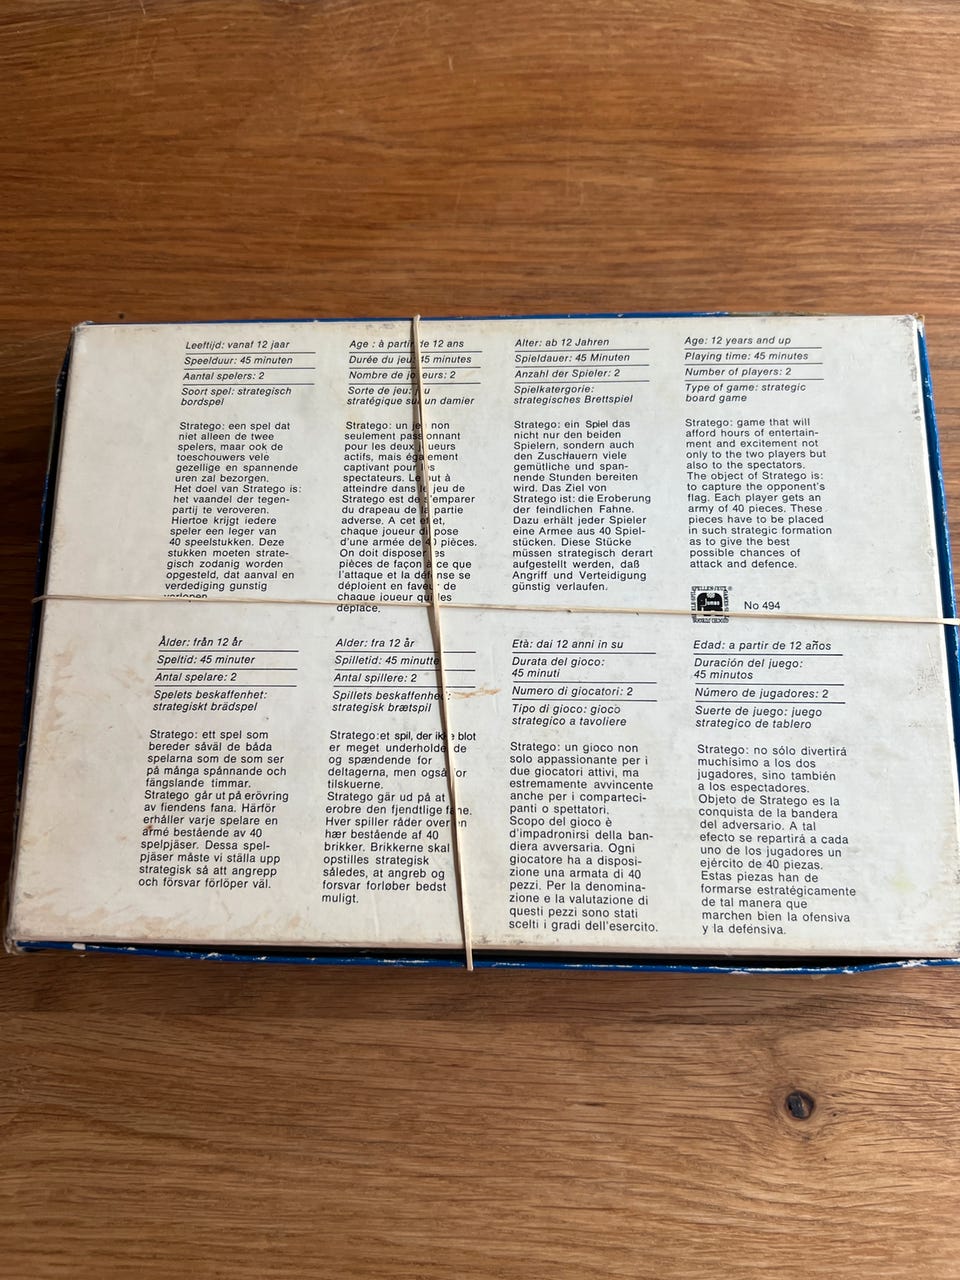 Leeftijd: vanaf 12 jaar
Speelduur: 45 minuten
Aantal spelers: 2
Soort spel: strategisch
bordspel
Stratego: een spel dat
niet alleen de twee
spelers, maar ook de
toeschouwers vele
gezellige en spannende
uren zal bezorgen.
Het doel van Stratego is:
het vaandel der tegen-
partij te veroveren.
Hiertoe krijgt iedere
speler een leger van
40 speelstukken. Deze
stukken moeten strate-
gisch zodanig worden
opgesteld, dat aanval en
verdediging gunstig
verlopen.
Age : à partir de 12 ans
Durée du jeu: 45 minutes
Nombre de joueurs: 2
Sorte de jeu: jeu
stratégique sur un damier
Stratego: un jeu non
seulement passionnant
pour les deux joueurs
actifs, mais également
captivant pour les
spectateurs. Le but à
atteindre dans le jeu de
Stratego est de s'emparer
du drapeau de la partie
adverse. A cet effet,
chaque joueur dispose
d'une armée de 40 pièces.
On doit disposer les
pièces de façon à ce que
l'attaque et la défense se
déploient en faveur de
chaque joueur qui les
déplace.
Alter: ab 12 Jahren
Spieldauer: 45 Minuten
Anzahl der Spieler: 2
Spielkatergorie:
strategisches Brettspiel
Stratego: ein Spiel das
nicht nur den beiden
Spielern, sondern auch
den Zuschauern viele
gemütliche und span-
nende Stunden bereiten
wird. Das Ziel von
Stratego ist: die Eroberung
der feindlichen Fahne.
Dazu erhält jeder Spieler
eine Armee aus 40 Spiel-
stücken. Diese Stücke
müssen strategisch derart
aufgestellt werden, daß
Angriff und Verteidigung
günstig verlaufen.
Age: 12 years and up
Playing time: 45 minutes
Number of players: 2
Type of game: strategic
board game
Stratego: game that will
afford hours of entertain-
ment and excitement not
only to the two players but
also to the spectators.
The object of Stratego is:
to capture the opponent's
flag. Each player gets an
army of 40 pieces. These
pieces have to be placed
in such strategic formation
as to give the best
possible chances of
attack and defence.
Jumbo
No 494
Ålder: från 12 år
Speltid: 45 minuter
Antal spelare: 2
Spelets beskaffenhet:
strategiskt brädspel
Stratego: ett spel som
bereder såväl de båda
spelarna som de som ser
på många spånnande och
fängslande timmar.
Stratego går ut på erövring
av fiendens fana. Härför
erhåller varje spelare en
armé bestående av 40
spelpjäser. Dessa spel-
pjäser måste vi ställa upp
strategisk så att angrepp
och försvar förlöper väl.
Alder: fra 12 år
Spilletid: 45 minutter
Antal spillere: 2
Spillets beskaffenhed:
strategisk brætspil
Stratego:et spil, der ikke blot
er meget underholdende
og spændende for
deltagerna, men også for
tilskuerne.
Stratego gär ud på at
erobre den fjendtlige fane.
Hver spiller råder over en
hær bestående af 40
brikker. Brikkerne skal
opstilles strategisk
således, at angreb og
forsvar forløber bedst
muligt.
Età: dai 12 anni in su
Durata del gioco:
45 minuti
Numero di giocatori: 2
Tipo di gioco: gioco
strategico a tavoliere
Stratego: un gioco non
solo appassionante per i
due giocatori attivi, ma
estremamente avvincente
anche per i comparteci-
panti o spettatori.
Scopo del gioco è
d'impadronirsi della ban-
diera avversaria. Ogni
giocatore ha a disposi-
zione una armata di 40
pezzi. Per la denomina-
zione e la valutazione di
questi pezzi sono stati
scelti i gradi dell'esercito.
Edad: a partir de 12 años
Duración del juego:
45 minutos
Número de jugadores: 2
Suerte de juego: juego
strategico de tablero
Stratego: no sólo divertirá
muchísimo a los dos
jugadores, sino también
a los espectadores.
Objeto de Stratego es la
conquista de la bandera
del adversario. A tal
efecto se repartirá a cada
uno de los jugadores un
ejército de 40 piezas.
Estas piezas han de
formarse estratégicamente
de tal manera que
marchen bien la ofensiva
y la defénsiva.